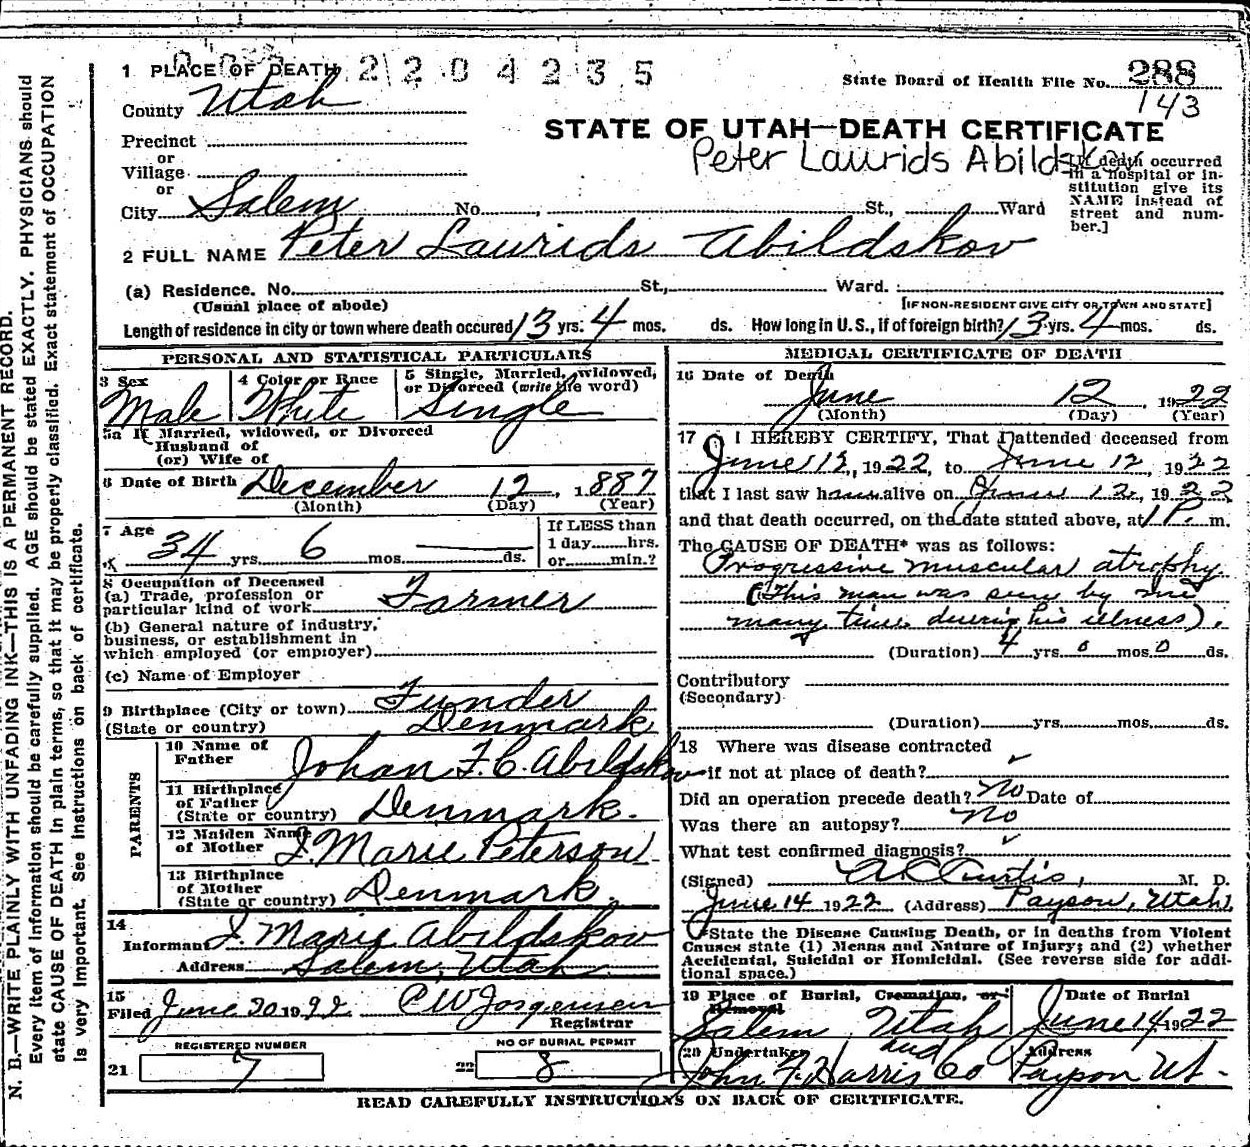 1 PLACE OF DEATH 2204235
State Board of Health File No. 288
143
County Utah
STATE OF UTAH—DEATH CERTIFICATE
Peter Laurids Abildskov
Precinct
or
Village
or
City Salem No. , St., Ward
[If death occurred
in a hospital or in-
stitution give its
NAME instead of
street and num-
ber.]
2 FULL NAME Peter Laurids Abildskov
(a) Residence. No. St., Ward.
(Usual place of abode) [IF NON-RESIDENT GIVE CITY OR TOWN AND STATE]
Length of residence in city or town where death occured 13 yrs. 4 mos. ds. How long in U. S., if of foreign birth? 13 yrs. 4 mos. ds.
PERSONAL AND STATISTICAL PARTICULARS
3 Sex
Male
4 Color or Race
White
5 Single, Married, widowed,
or Divorced (write the word)
Single
5a If Married, widowed, or Divorced
Husband of
(or) Wife of
6 Date of Birth December 12, 1887
(Month) (Day) (Year)
7 Age
34 yrs. 6 mos. ds.
If LESS than
1 day hrs.
or min.?
8 Occupation of Deceased
(a) Trade, profession or
particular kind of work Farmer
(b) General nature of industry,
business, or establishment in
which employed (or employer)
(c) Name of Employer
9 Birthplace (City or town) Funder
(State or country) Denmark
PARENTS
10 Name of
Father Johan F. C. Abildskov
11 Birthplace
of Father
(State or country) Denmark.
12 Maiden Name
of Mother I. Marie Peterson
13 Birthplace
of Mother
(State or country) Denmark.
14
Informant I. Marie Abildskov
Address Salem, Utah
15
Filed June 20 1922 C W Jorgensen
Registrar
REGISTERED NUMBER
21 7
NO OF BURIAL PERMIT
22 8
MEDICAL CERTIFICATE OF DEATH
16 Date of Death
June 12, 1922
(Month) (Day) (Year)
17 I HEREBY CERTIFY, That I attended deceased from
June 12, 1922, to June 12, 1922
that I last saw h alive on June 12, 1922
and that death occurred, on the date stated above, at 1 P. m.
The CAUSE OF DEATH* was as follows:
Progressive muscular atrophy
(This man was seen by me
many times during his illness).
(Duration) 4 yrs 0 mos 0 ds.
Contributory
(Secondary)
(Duration) yrs. mos. ds.
18 Where was disease contracted
if not at place of death?
Did an operation precede death? No Date of
Was there an autopsy? No
What test confirmed diagnosis?
(Signed) A C Curtis, M. D.
June 14 1922 (Address) Payson, Utah.
*State the Disease Causing Death, or in deaths from Violent
Causes state (1) Means and Nature of Injury; and (2) whether
Accidental, Suicidal or Homicidal. (See reverse side for addi-
tional space.)
19 Place of Burial, Cremation, or
Removal
Salem Utah
Date of Burial
June 14 1922
20 Undertaker
John F. Harris and Co
Address
Payson Ut.
READ CAREFULLY INSTRUCTIONS ON BACK OF CERTIFICATE.
N. B.—WRITE PLAINLY WITH UNFADING INK—THIS IS A PERMANENT RECORD.
Every item of information should be carefully supplied. AGE should be stated EXACTLY. PHYSICIANS should
state CAUSE OF DEATH in plain terms, so that it may be properly classified. Exact statement of OCCUPATION
is very important. See instructions on back of certificate.